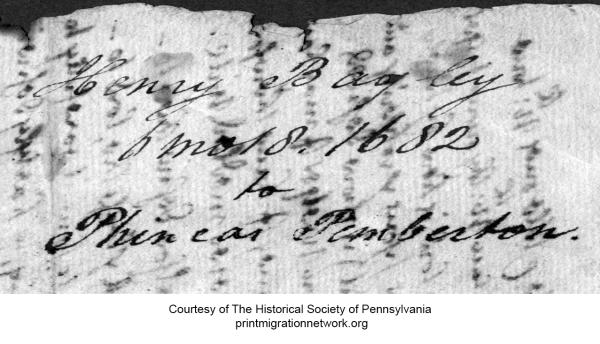 Henry Bagley
6 mo 8. 1682
to
Phineas Pemberton.
Courtesy of The Historical Society of Pennsylvania
printmigrationnetwork.org